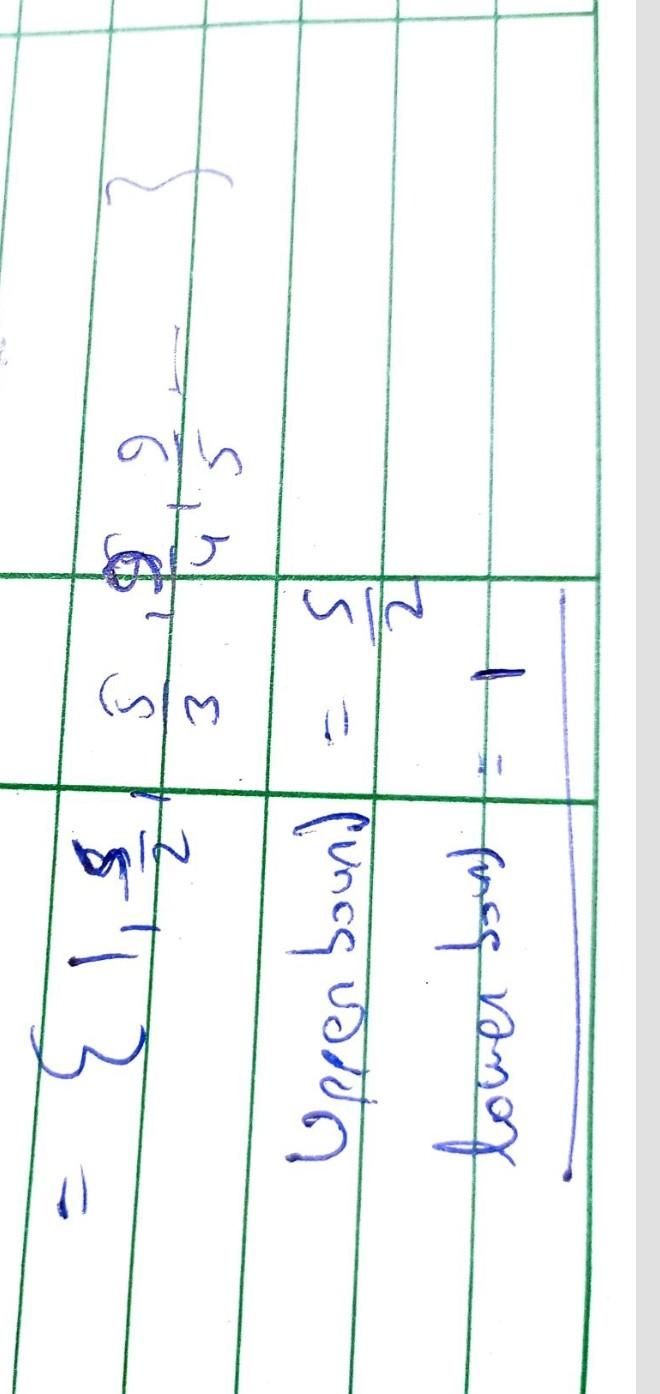 = { 1, 5/2, 5/3, 5/4, 6/5 — }
Upper bound = 5/2
lower bound = 1